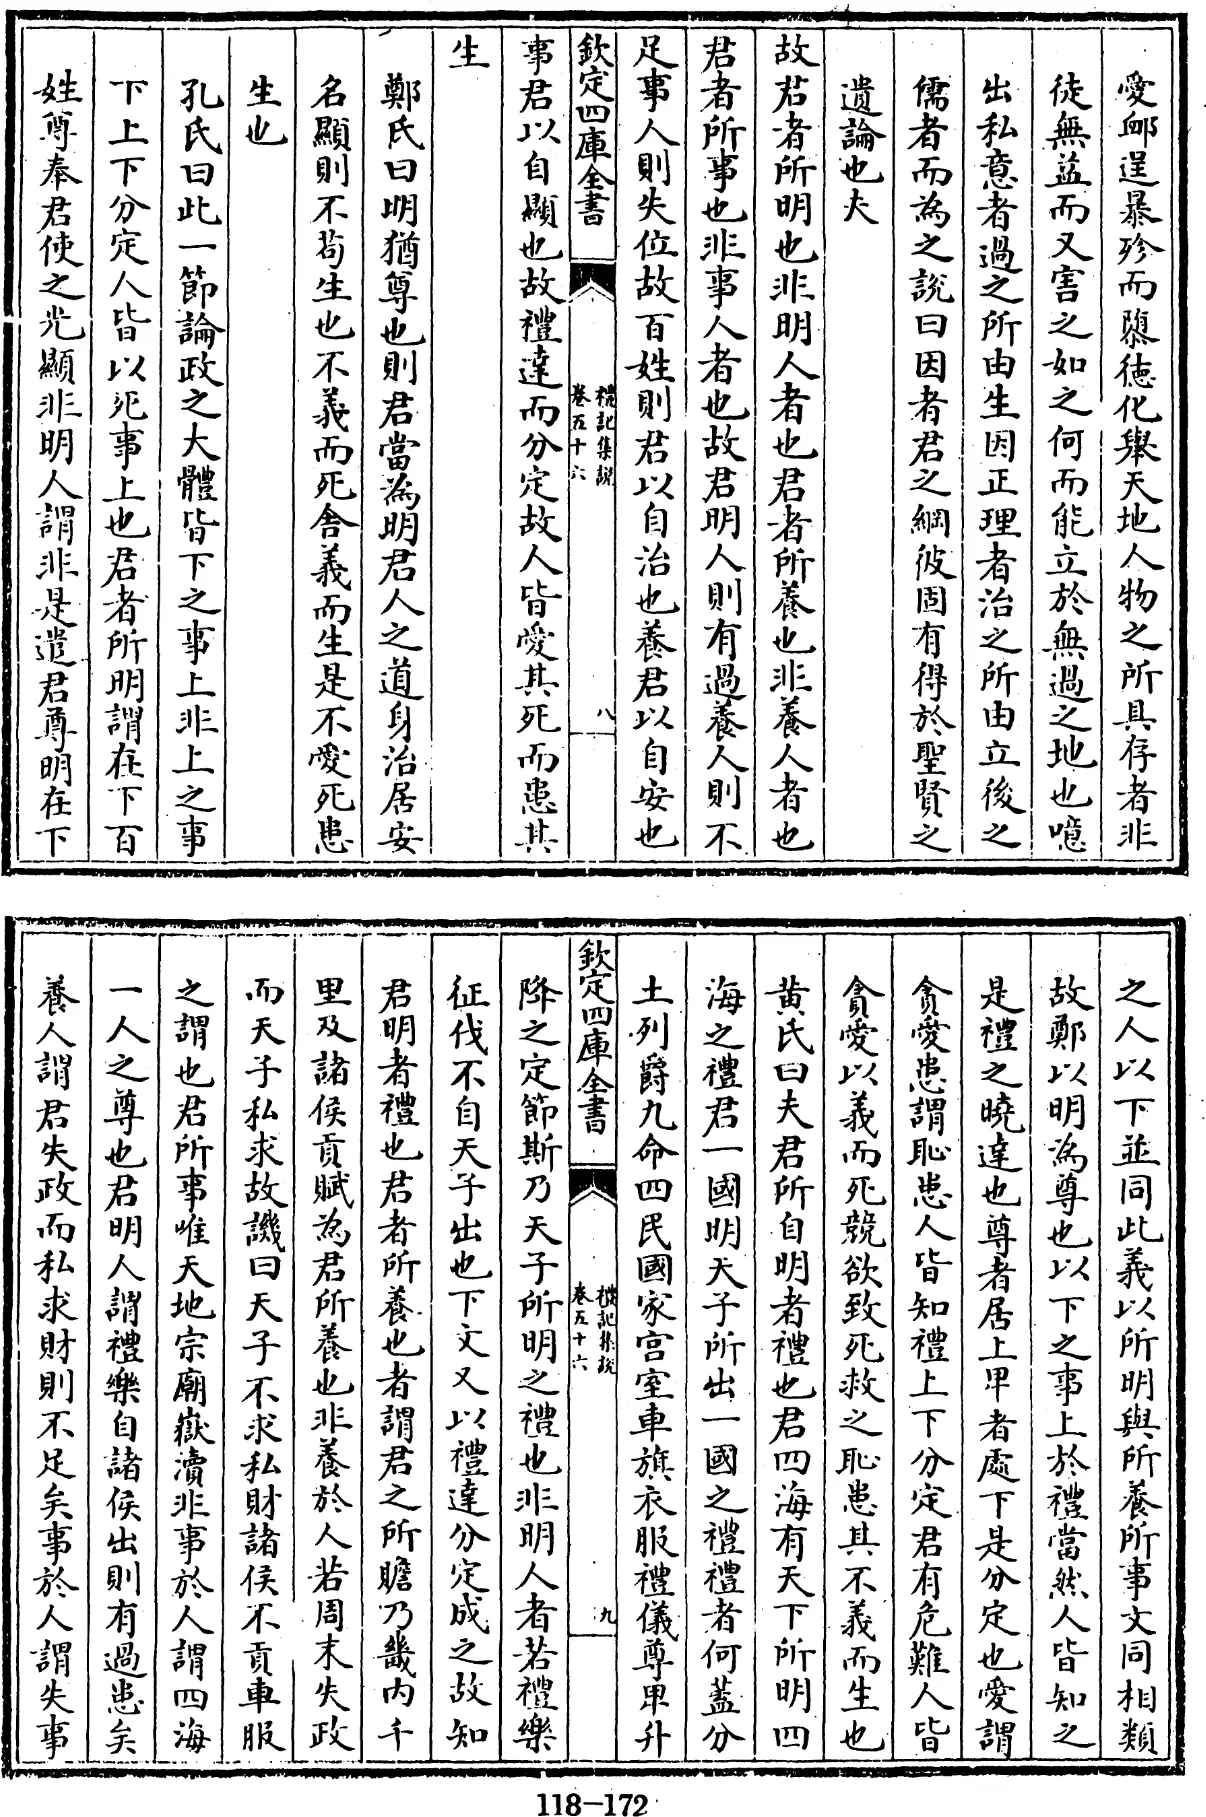 愛䘏逞暴殄而隳徳化舉天地人物之所具存者非
徒無益而又害之如之何而能立於無過之地也噫
出私意者過之所由生因正理者治之所由立後之
儒者而為之說曰因者君之綱彼固有得於聖賢之
遺論也夫
故君者所明也非明人者也君者所養也非養人者也
君者所事也非事人者也故君明人則有過養人則不
足事人則失位故百姓則君以自治也養君以自安也
欽定四庫全書
禮記集說
卷五十六
八
事君以自顯也故禮達而分定故人皆愛其死而患其
生
鄭氏曰明猶尊也則君當為明君人之道身治居安
名顯則不苟生也不義而死舍義而生是不愛死患
生也
孔氏曰此一節論政之大體皆下之事上非上之事
下上下分定人皆以死事上也君者所明謂在下百
姓尊奉君使之光顯非明人謂非是遣君尊明在下
之人以下並同此義以所明與所養所事文同相類
故鄭以明為尊也以下之事上於禮當然人皆知之
是禮之曉達也尊者居上卑者處下是分定也愛謂
貪愛患謂恥患人皆知禮上下分定君有危難人皆
貪愛以義而死競欲致死救之恥患其不義而生也
黄氏曰夫君所自明者禮也君四海有天下所明四
海之禮君一國明天子所出一國之禮禮者何蓋分
土列爵九命四民國家宫室車旗衣服禮儀尊卑升
欽定四庫全書
禮記集說
卷五十六
九
降之定節斯乃天子所明之禮也非明人者若禮樂
征伐不自天子出也下文又以禮達分定成之故知
君明者禮也君者所養也者謂君之所贍乃畿内千
里及諸侯貢賦為君所養也非養於人若周末失政
而天子私求故譏曰天子不求私財諸侯不貢車服
之謂也君所事唯天地宗廟嶽瀆非事於人謂四海
一人之尊也君明人謂禮樂自諸侯出則有過患矣
養人謂君失政而私求財則不足矣事於人謂失事
118-172